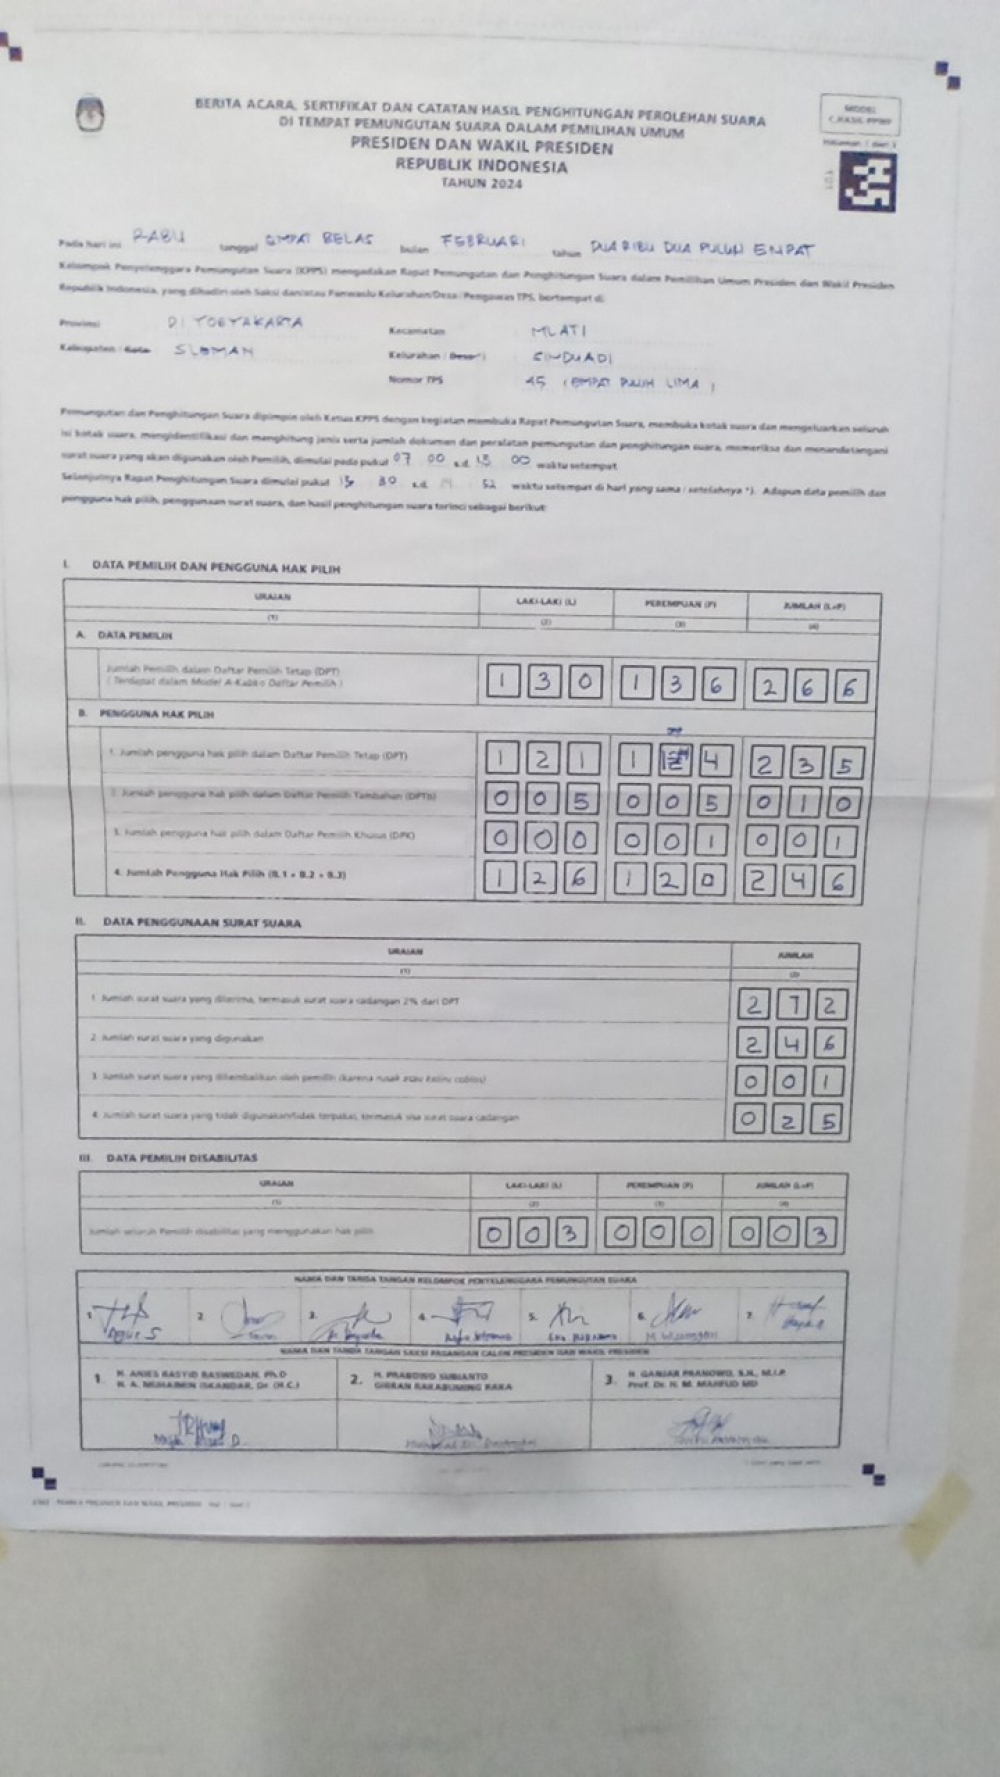 BERITA ACARA, SERTIFIKAT DAN CATATAN HASIL PENGHITUNGAN PEROLEHAN SUARA
DI TEMPAT PEMUNGUTAN SUARA DALAM PEMILIHAN UMUM
PRESIDEN DAN WAKIL PRESIDEN
REPUBLIK INDONESIA
TAHUN 2024
MODEL
C.HASIL-PPWP
Halaman 1 dari 3
Pada hari ini RABU tanggal EMPAT BELAS bulan FEBRUARI tahun DUA RIBU DUA PULUH EMPAT
Kelompok Penyelenggara Pemungutan Suara (KPPS) mengadakan Rapat Pemungutan dan Penghitungan Suara dalam Pemilihan Umum Presiden dan Wakil Presiden
Republik Indonesia, yang dihadiri oleh Saksi dan/atau Panwaslu Kelurahan/Desa/Pengawas TPS, bertempat di:
Provinsi DI YOGYAKARTA
Kecamatan MLATI
Kabupaten / Kota SLEMAN
Kelurahan / Desa*) SINDUADI
Nomor TPS 45 (EMPAT PULUH LIMA)
Pemungutan dan Penghitungan Suara dipimpin oleh Ketua KPPS dengan kegiatan membuka Rapat Pemungutan Suara, membuka kotak suara dan mengeluarkan seluruh
isi kotak suara, mengidentifikasi dan menghitung jenis serta jumlah dokumen dan peralatan pemungutan dan penghitungan suara, memeriksa dan menandatangani
surat suara yang akan digunakan oleh Pemilih, dimulai pada pukul 07 00 s.d. 13 00 waktu setempat
Selanjutnya Rapat Penghitungan Suara dimulai pukul 13 30 s.d. 52 waktu setempat di hari yang sama / setelahnya *). Adapun data pemilih dan
pengguna hak pilih, penggunaan surat suara, dan hasil penghitungan suara terinci sebagai berikut:
I. DATA PEMILIH DAN PENGGUNA HAK PILIH
URAIAN LAKI-LAKI (L) PEREMPUAN (P) JUMLAH (L+P)
(1) (2) (3) (4)
A. DATA PEMILIH
Jumlah Pemilih dalam Daftar Pemilih Tetap (DPT)
(Terdapat dalam Model A-Kabko Daftar Pemilih) 130 136 266
B. PENGGUNA HAK PILIH
1. Jumlah pengguna hak pilih dalam Daftar Pemilih Tetap (DPT) 121 1 4 235
2. Jumlah pengguna hak pilih dalam Daftar Pemilih Tambahan (DPTb) 005 005 010
3. Jumlah pengguna hak pilih dalam Daftar Pemilih Khusus (DPK) 000 001 001
4. Jumlah Pengguna Hak Pilih (B.1 + B.2 + B.3) 126 120 246
II. DATA PENGGUNAAN SURAT SUARA
URAIAN JUMLAH
(1) (2)
1. Jumlah surat suara yang diterima, termasuk surat suara cadangan 2% dari DPT 272
2. Jumlah surat suara yang digunakan 246
3. Jumlah surat suara yang dikembalikan oleh pemilih (karena rusak atau keliru coblos) 001
4. Jumlah surat suara yang tidak digunakan/tidak terpakai, termasuk sisa surat suara cadangan 025
III. DATA PEMILIH DISABILITAS
URAIAN LAKI-LAKI (L) PEREMPUAN (P) JUMLAH (L+P)
(1) (2) (3) (4)
Jumlah seluruh Pemilih disabilitas yang menggunakan hak pilih 003 000 003
NAMA DAN TANDA TANGAN KELOMPOK PENYELENGGARA PEMUNGUTAN SUARA
1. 2. 3. 4. 5. 6. 7.
Agus S
NAMA DAN TANDA TANGAN SAKSI PASANGAN CALON PRESIDEN DAN WAKIL PRESIDEN
1. H. ANIES RASYID BASWEDAN, Ph.D
H. A. MUHAIMIN ISKANDAR, Dr. (H.C.)
2. H. PRABOWO SUBIANTO
GIBRAN RAKABUMING RAKA
3. H. GANJAR PRANOWO, S.H., M.I.P.
Prof. Dr. H. M. MAHFUD MD